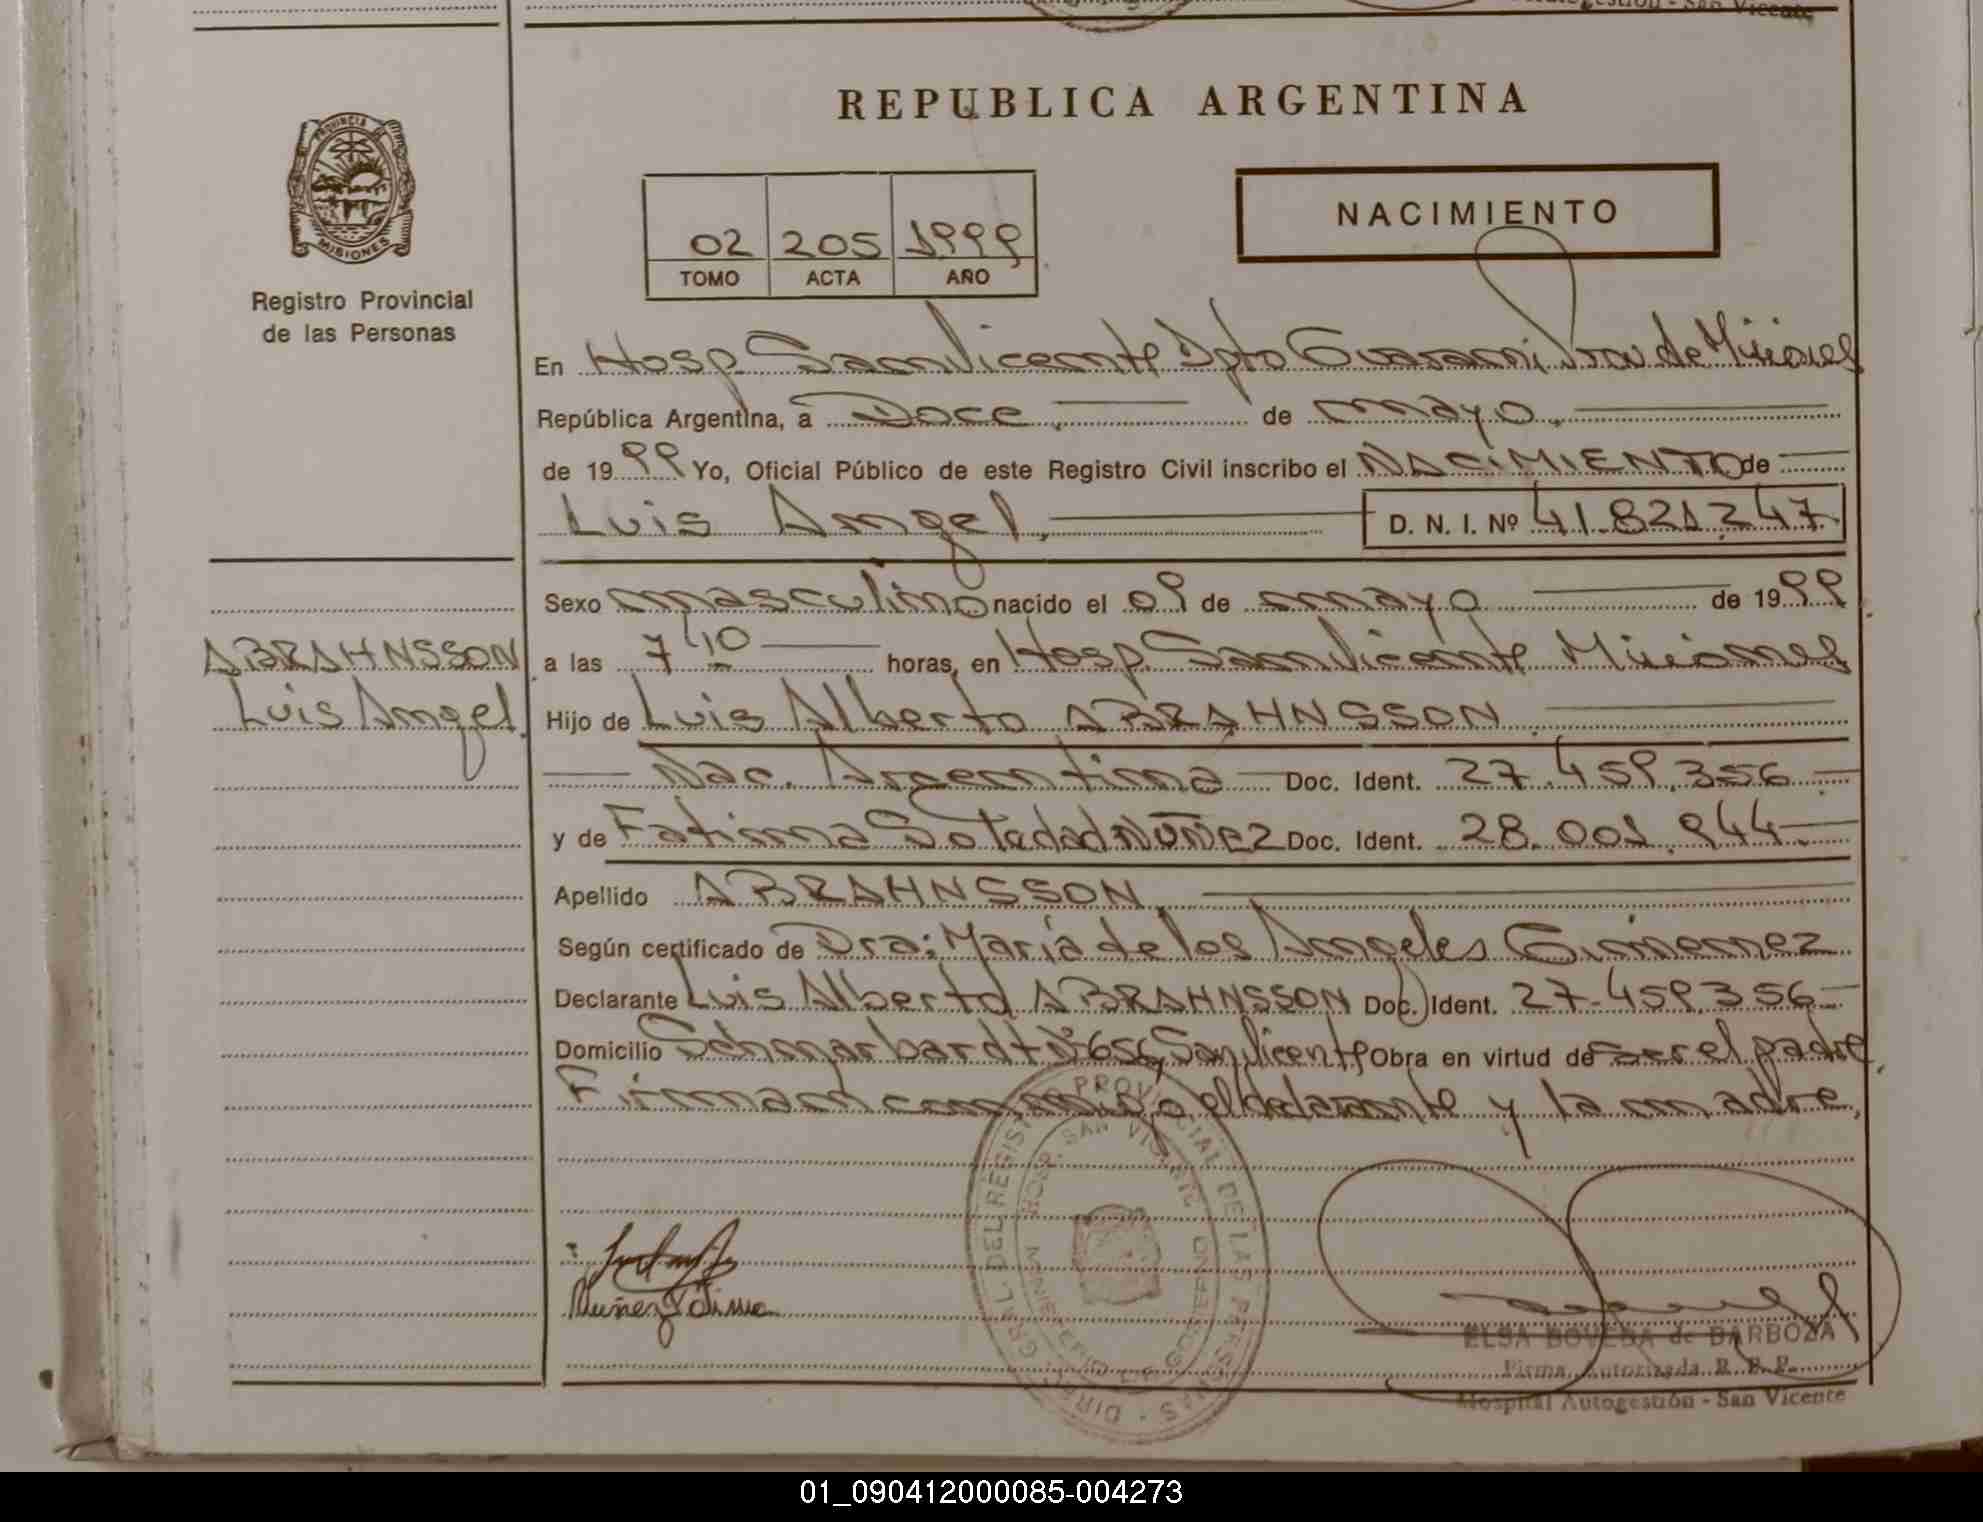 Autogestión - San Vicente
REPUBLICA ARGENTINA
PROVINCIA DE
MISIONES
Registro Provincial
de las Personas
02 205 1999
TOMO ACTA AÑO
NACIMIENTO
En Hosp. San Vicente Dpto Guarani Prov de Misiones
República Argentina, a Doce, de mayo,
de 1999 Yo, Oficial Público de este Registro Civil inscribo el NACIMIENTO de
Luis Angel, D. N. I. Nº 41.821.247
Sexo masculino nacido el 09 de mayo de 1999
ABRAHNSSON
Luis Angel.
a las 7'10 horas, en Hosp. San Vicente Misiones
Hijo de Luis Alberto ABRAHNSSON
Nac. Argentina Doc. Ident. 27.459.356
y de Fatima Soledad NUÑEZ Doc. Ident. 28.001.944
Apellido ABRAHNSSON
Según certificado de Dra: María de los Angeles Gimenez
Declarante Luis Alberto ABRAHNSSON Doc. Ident. 27.459.356
Domicilio Nº 656, San Vicente Obra en virtud de ser el padre,
Firman conmigo el declarante y la madre,
DIREC. GRAL. DEL REGISTRO PROVINCIAL DE LAS PERSONAS
HOSP. SAN VICENTE
Nuñez Fátima
ELSA BOVEDA de BARBOZA
Firma Autorizada R. P. P.
Hospital Autogestión - San Vicente
01_090412000085-004273